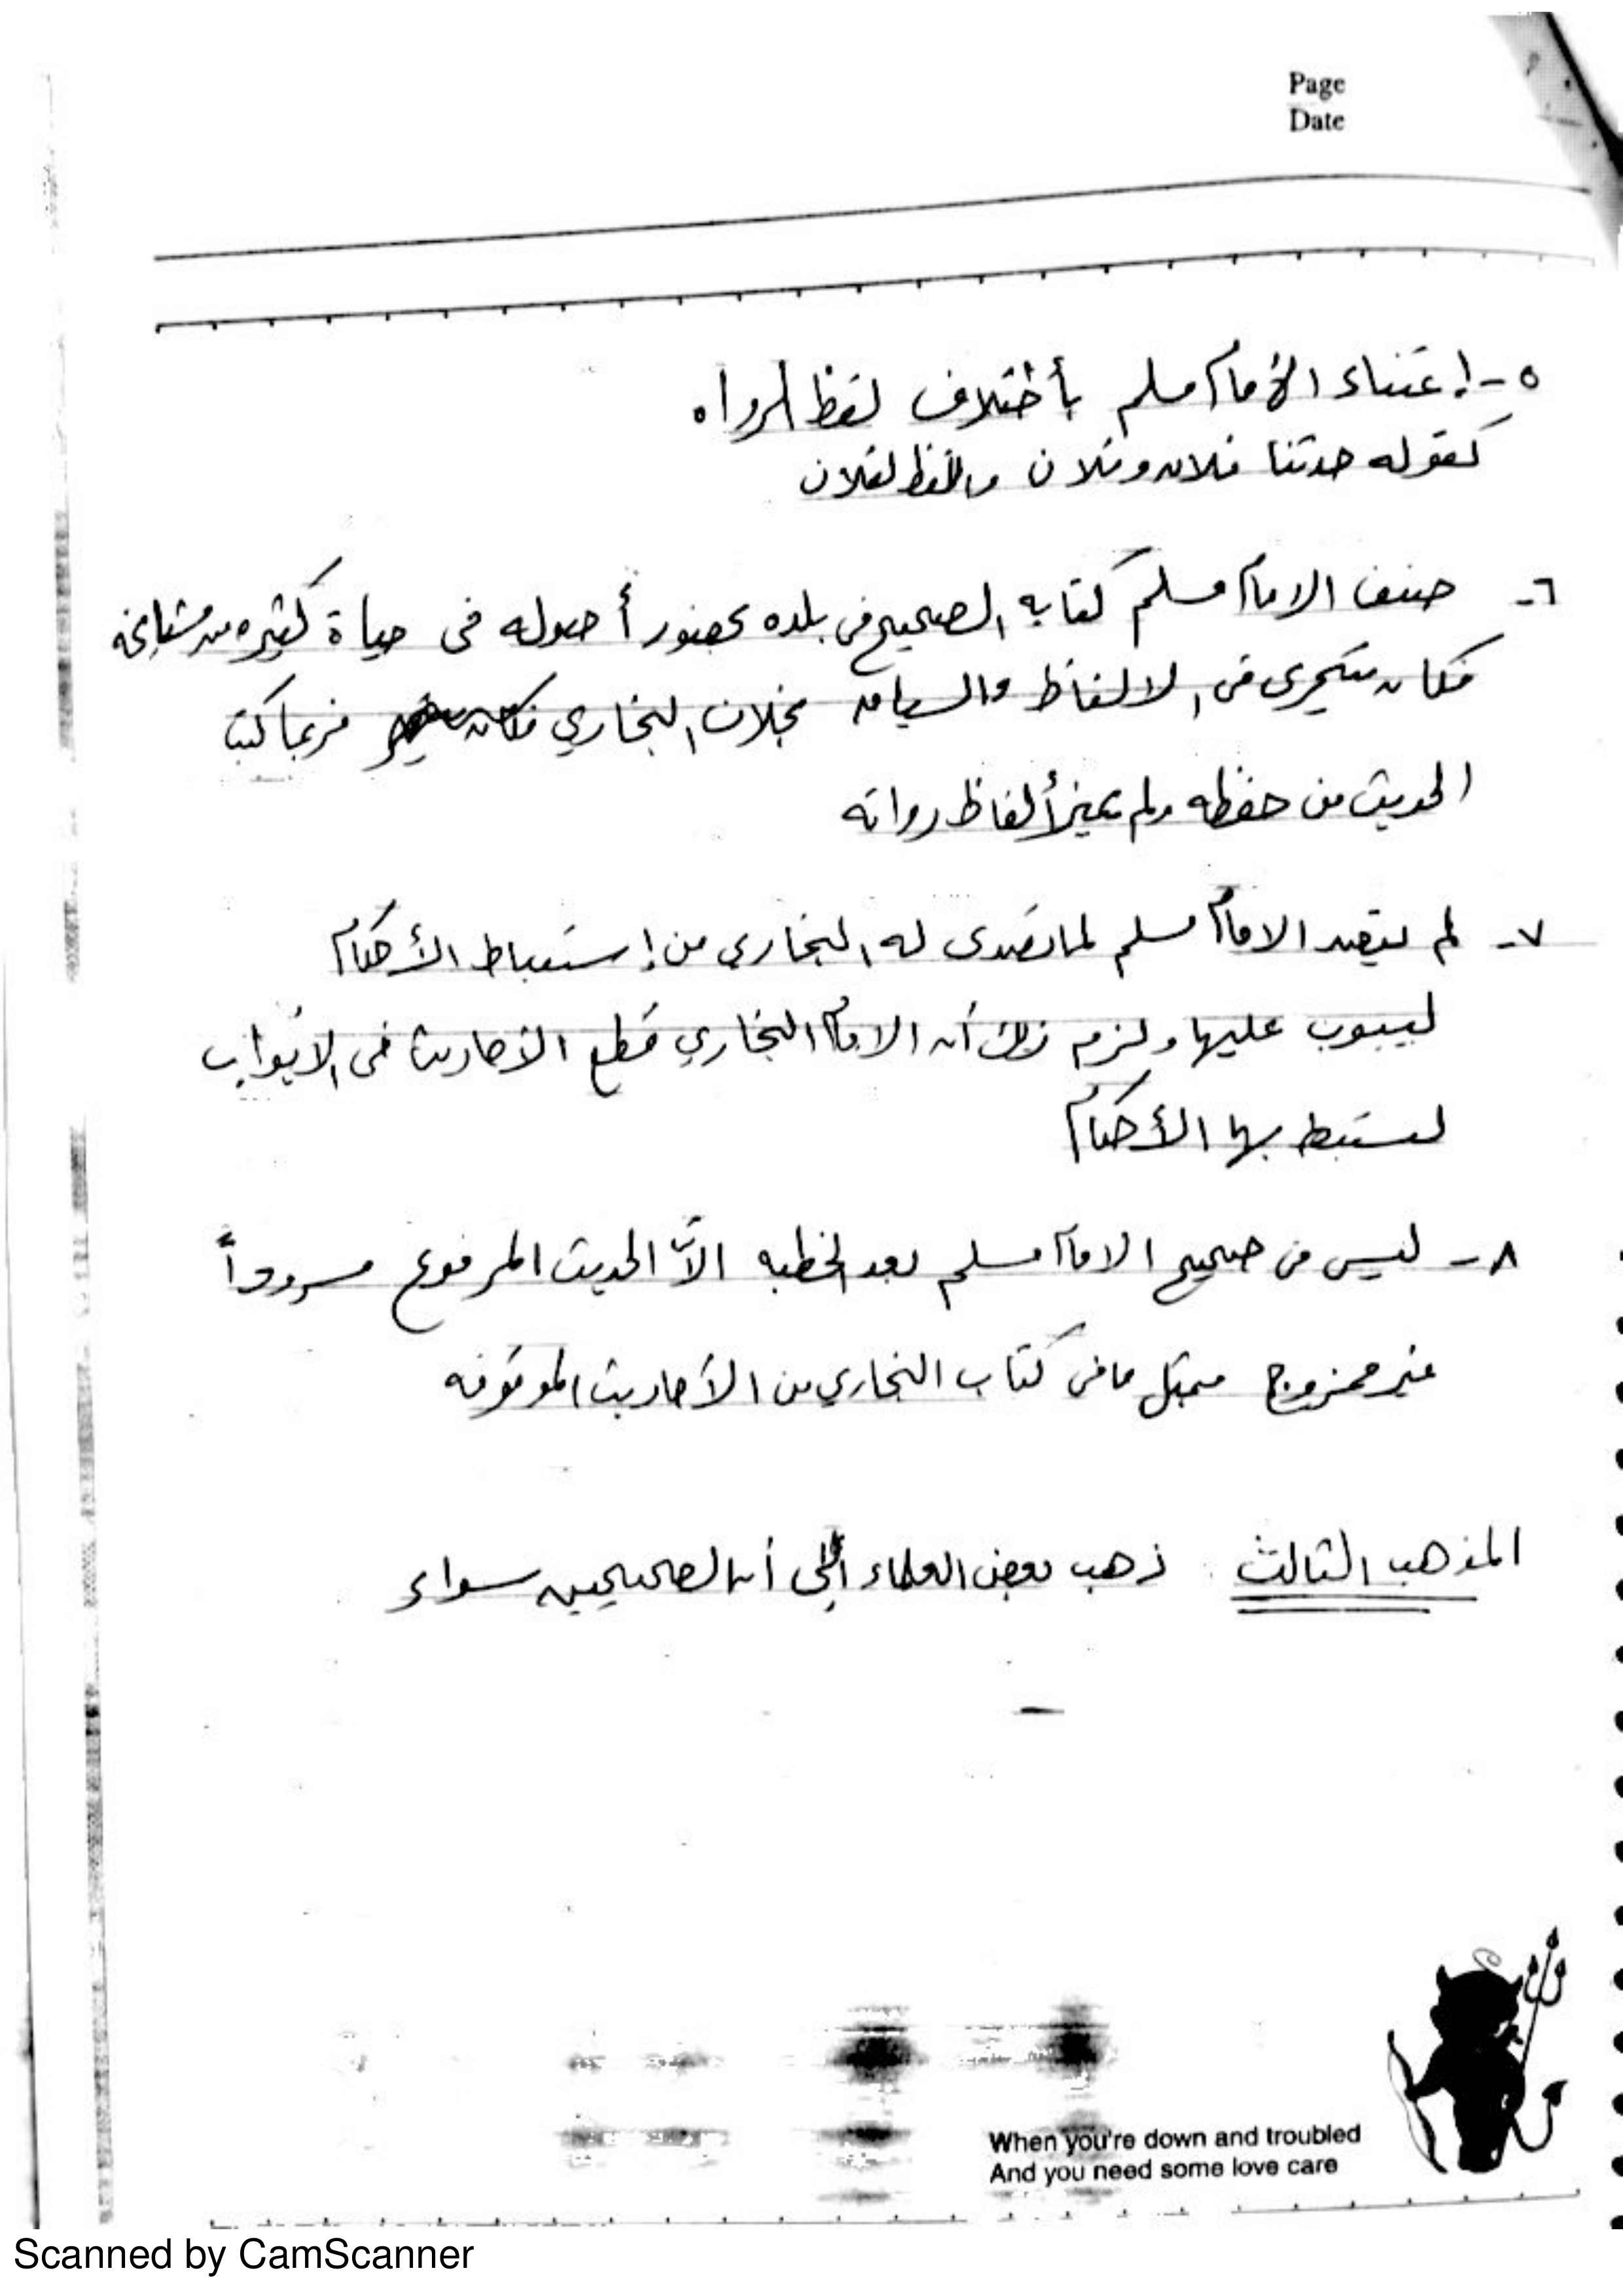 Page
Date
٥- إعتناء الأمام مسلم بأختلاف لفظ الرواه
كقوله حدثنا فلان وفلان واللفظ لفلان
٦- صنف الامام مسلم كتابه الصحيح في بلده بحضور أصوله في حياة كثيره من مشايخه
فكان يتحرى في الالفاظ والسياق بخلاف البخاري فربما كتب
الحديث من حفظه ولم يميز ألفاظ رواته
٧- لم يتصد الامام مسلم لما تصدى له البخاري من إستنباط الأحكام
ليبوب عليها ولزم ذلك أن الامام البخاري قطع الأحاديث في الابواب
ليستنبط بها الأحكام
٨- ليس في صحيح الامام مسلم بعد الخطبه الاَّ الحديث المرفوع مسروداً
غير ممزوج بمثل ما في كتاب البخاري من الأحاديث الموقوفه
المذهب الثالث: ذهب بعض العلماء إلى أن الصحيحين سواء
When you're down and troubled
And you need some love care
Scanned by CamScanner